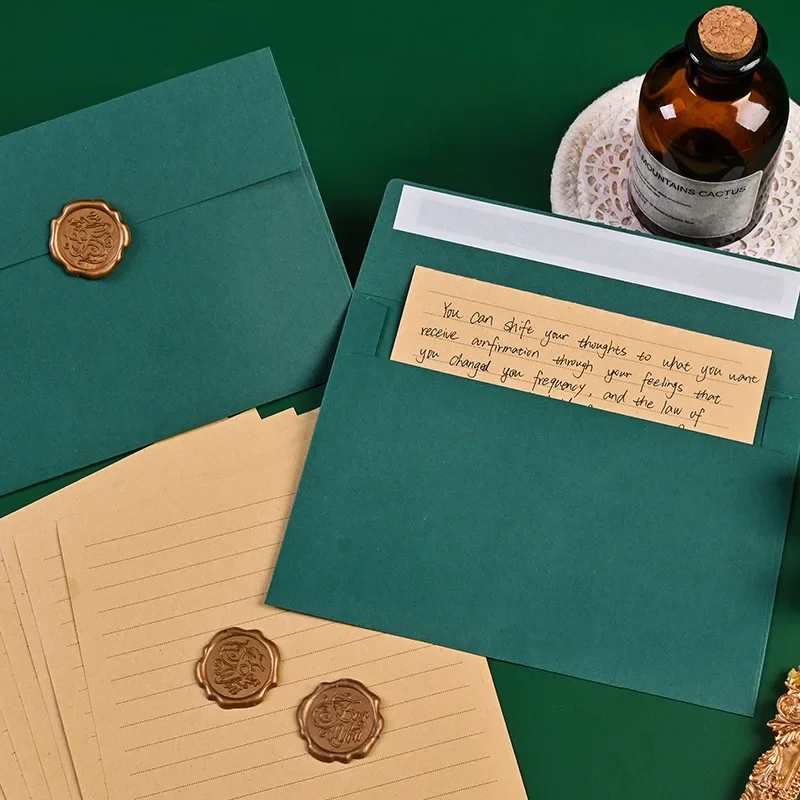 MOUNTAINS CACTUS
You can shife your thoughts to what you want
receive confirmation through your feelings that
you changed you frequency, and the law of